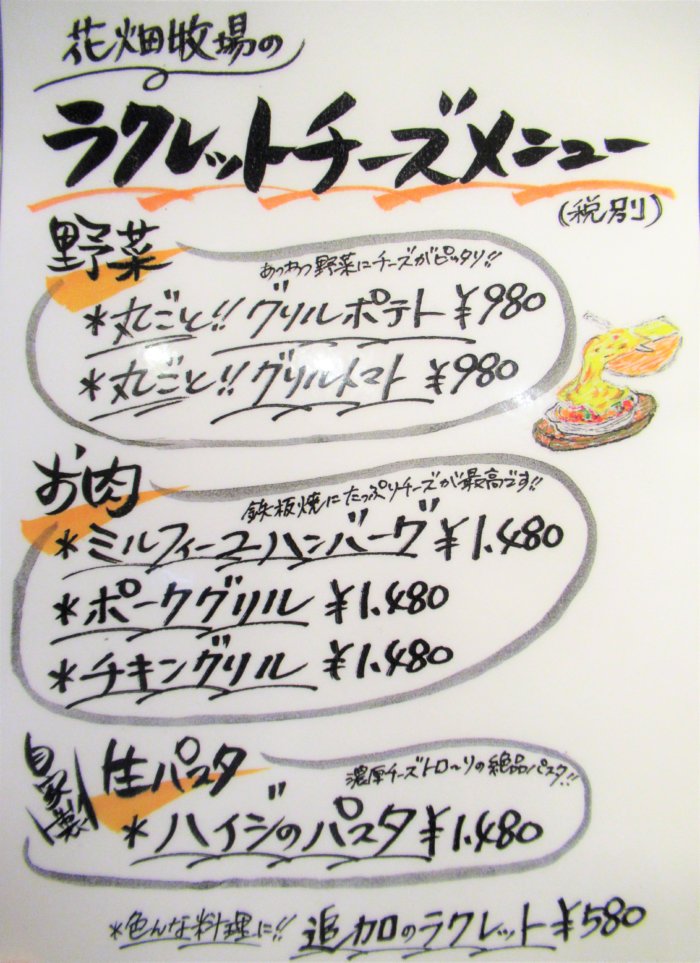 花畑牧場の
ラクレットチーズメニュー
(税別)
野菜
あつあつ野菜にチーズがピッタリ!!
*丸ごと!!グリルポテト ¥980
*丸ごと!!グリルトマト ¥980
お肉
鉄板焼にたっぷりチーズが最高です!!
*ミルフィーユハンバーグ ¥1.480
*ポークグリル ¥1.480
*チキングリル ¥1.480
自家製 生パスタ
濃厚チーズトロ〜リの絶品パスタ!!
*ハイジのパスタ ¥1.480
*色んな料理に!! 追加のラクレット ¥580